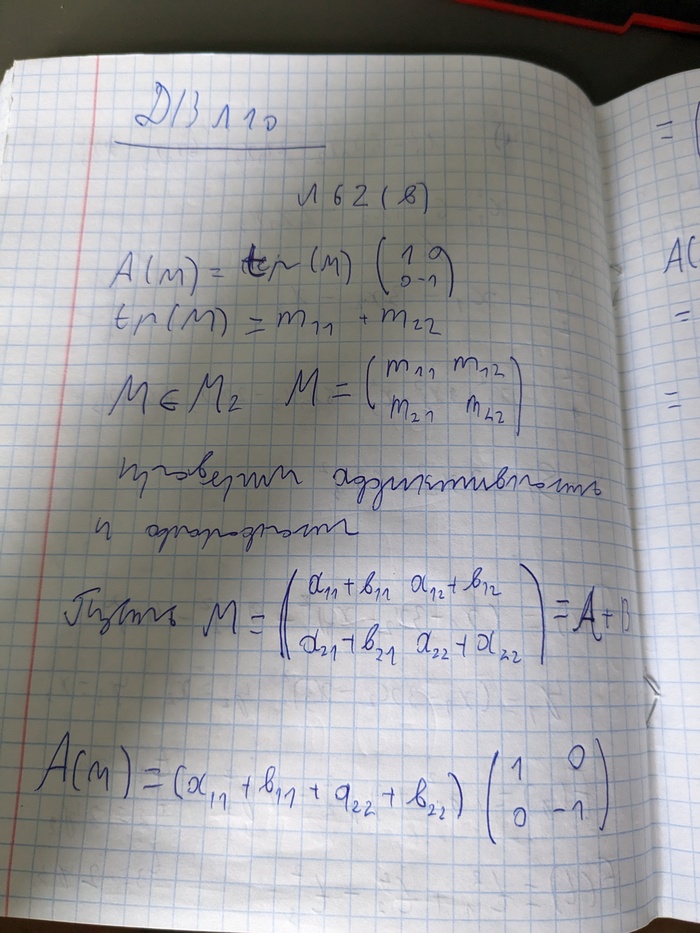 ДЗ №10
№62(в)
A(M) = tr(M) (1 0
0 -1)
tr(M) = m₁₁ + m₂₂
M ∈ M₂ M = (m₁₁ m₁₂
m₂₁ m₂₂)
проверим аддитивность
и однородность
Пусть M = (a₁₁+b₁₁ a₁₂+b₁₂
a₂₁+b₂₁ a₂₂+a₂₂) = A+B
A(M) = (a₁₁ + b₁₁ + a₂₂ + b₂₂) (1 0
0 -1)
= (
A(
=
=